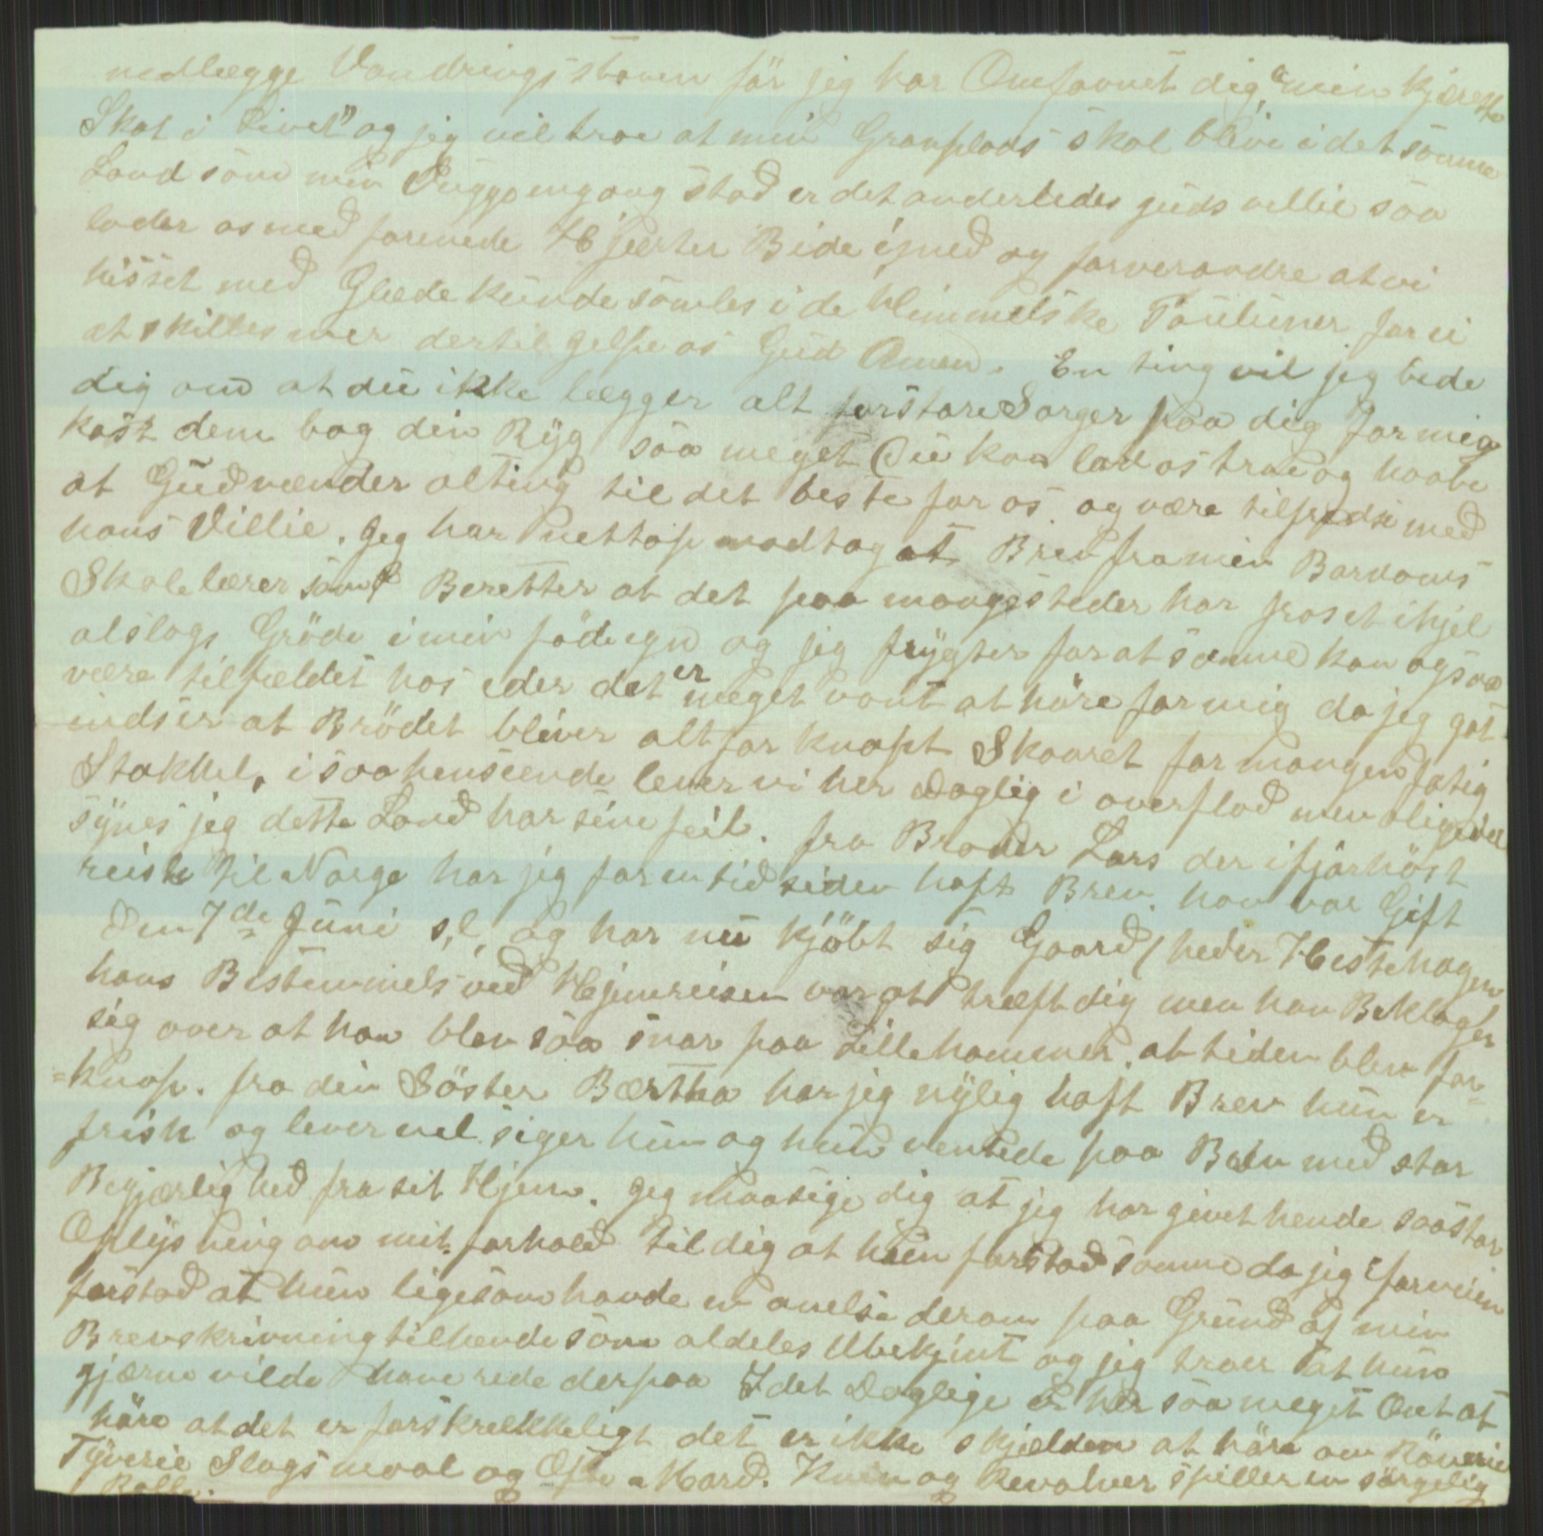 nedlægge Vandringsstaven før jeg har Omfavnet dig, "min kjæreste
Skat i Livet" og jeg vil troe at min Gravplads skal blive i det samme
Land som min Vuggegang stod er det anderledes guds villie saa
lader os med forenede Hjærter Bide ig med og forverandre at vi
hisset med Glæde kunde samles i de Himmelske Pauluner for ei
at skilles mer dertil gelpe os Gud Amen. En ting vil jeg bede
dig om at du ikke lægger alt for store Sorger paa dig for mig
kast dem bag din Ryg saa meget Du kan lad os troe og haabe
at Gud vænder alting til det beste for os og være tilfreds med
hans Villie. Jeg har nettop modtaget Brev fra min Barndoms
Skolelærer som Beretter at det paa mange steder har froset ihjel
alslags Gröde i min föde egn og jeg frygter for at samme kan ogsaa
være tilfældet hos eder det er meget vont at höre for mig da jeg got
indser at Brödet bliver alt for knapt Skaaret for mangen fatig
Stakkel, i saa henseende lever vi her Daglig i overflod men aligevel
synes jeg dette Land har sine feil. fra Broder Lars der ifjor höst
reiste til Norge har jeg for en tid siden haft Brev. han var Gift
Den 7de Juni s,l, og har nu kjöbt sig Gaard (heder Hestehagen
hans Bestemmels ved Hjemreisen var at træft dig men han Beklager
sig over at han blev saa snar paa Lillehammer. at tiden blev for=
=knap. fra din Söster Bærtha har jeg nylig haft Brev hun er
frisk og lever vel siger hun og hun ventede paa Brev med stor
Begjærlighed fra sit Hjem. Jeg maa sige dig at jeg har givet hende saa stor
Oplysning om mit forhold til dig at hun forstod samme da jeg forvein
forstod at hun ligesom havde en anelse derom paa Grund af min
Brevskrivning til hende som aldeles Ubekjent og jeg troer at hun
gjærne vilde have rede derpaa I det Daglige er her saa meget Ont at
höre at det er forskrekkeligt det er ikke skjelden at höre om Röverie
Tyverie Slagsmaal og Ofte Mord. Kniv og Revolver spiller en sörgelig
Rolle.